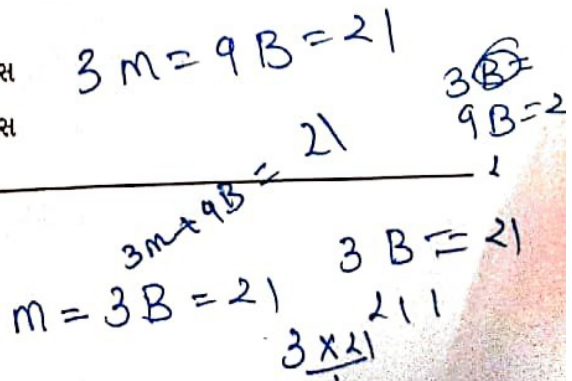 स
3 m = 9 B = 21
3 B =
स
9 B = 2
3m + 9B = 21
3 B = 21
m = 3 B = 21
211
3 × 21